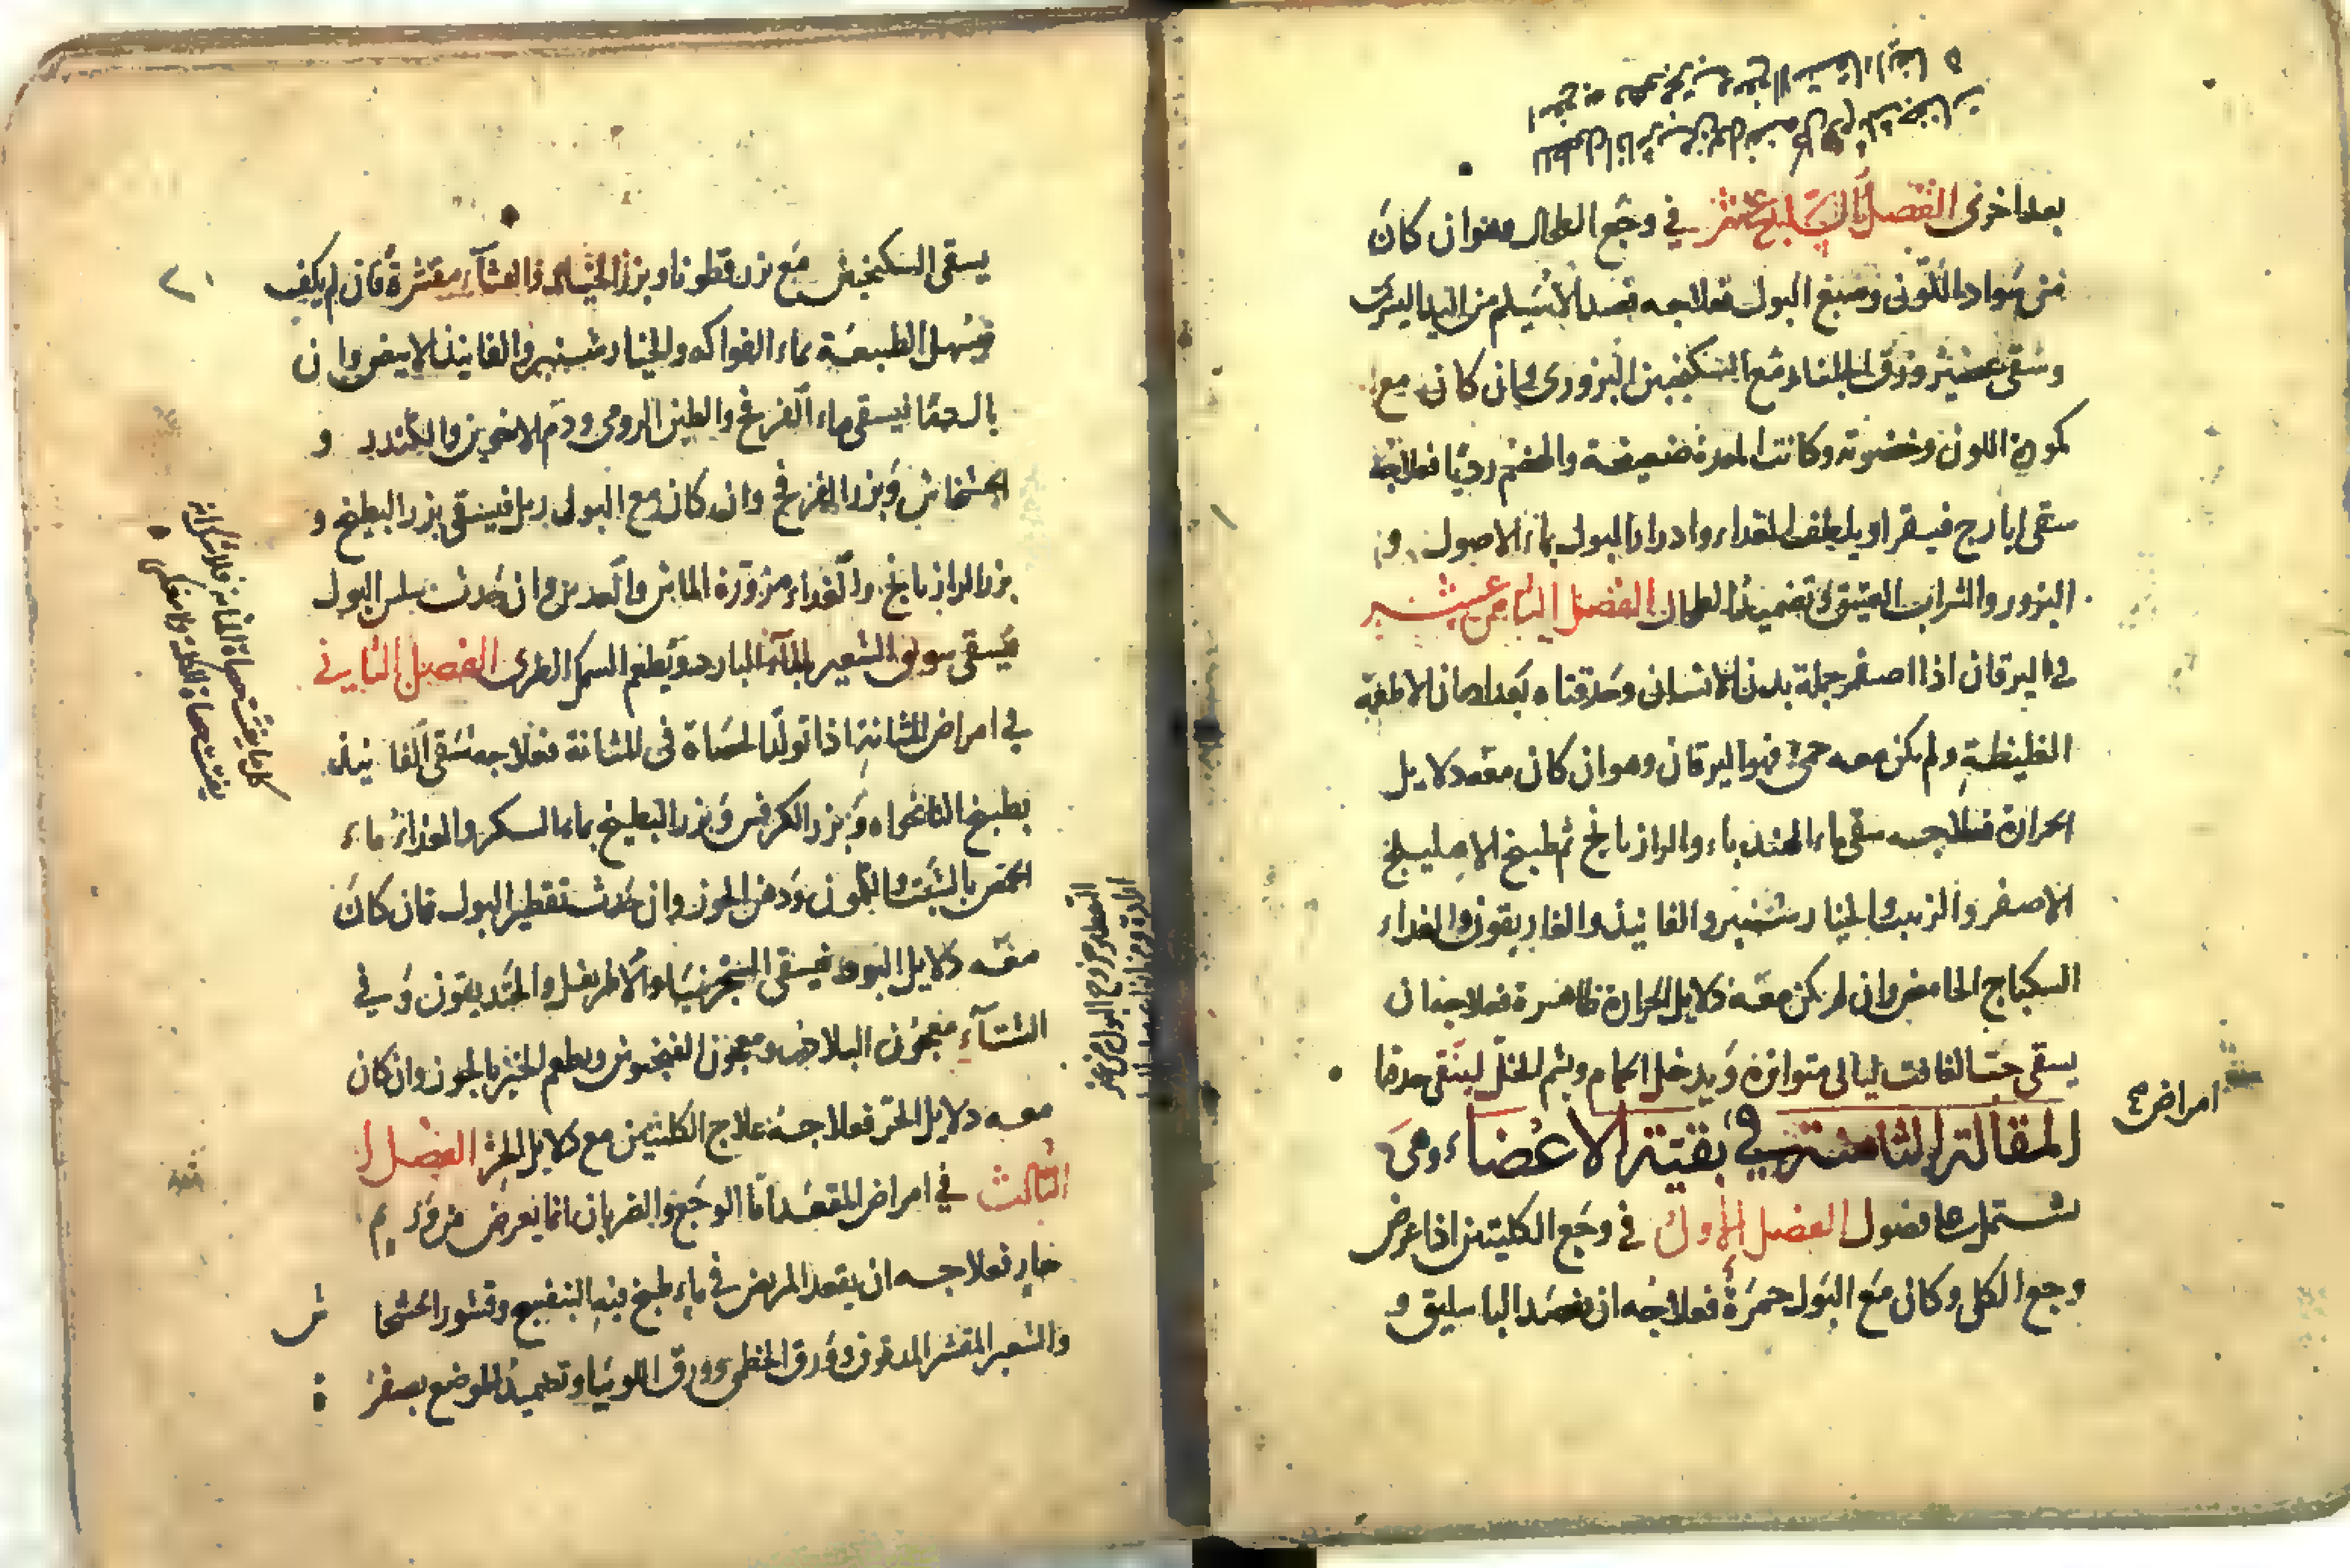 بعد اخرى الفصل السابع عشر في وجع الطحال وهو ان كان
من سواد اللون وصبغ البول فعلاجه فصد الاسيلم من اليد اليسرى
وسقى عصير ورق الخلاف مع السكنجبين البزورى وان كان مع
كمودة اللون وخضرته وكانت المعدة ضعيفة والهضم رديّا فعلاجه
سقى ايارج فيقرا ويلطف الغداء وادرار البول بماء الاصول و
البزور والشراب العتيق وتضميد الطحال الفصل الثامن عشر
في اليرقان اذا اصفر جملة بدن الانسان وحدقتاه بعد ادمان الاطعمة
الغليظة ولم يكن معه حمى فهو اليرقان وهو ان كان معه دلايل
الحرارة فعلاجه سقى ماء الهندباء والرازيانج ثم طبيخ الاهليلج
الاصفر والزبيب والخيارشنبر والفانيذ والغاريقون والغداء
السكباج الحامض وان لم يكن معه دلايل الحرارة ظاهرة فعلاجه ان
يسقى حب الغافت ليالى متواترة ويدخل الحمام ويشم الخل لينقى حدقتا
المقالة الثامنة في بقية الاعضاء وهى
امراض
تشتمل على فصول الفصل الأول في وجع الكليتين اذا عرض
وجع الكلى وكان مع البول حمرة فعلاجه ان يفصد الباسليق و
يسقى السكنجبين مع بزر قطونا وبزر الخيار والقثاء مقشرة فان لم يكف
فيسهل الطبيعة بماء الفواكه والخيارشنبر والفانيذ لا بيض وان
بال دما فيسقى ماء الفرفخ والطين الرومى ودم الاخوين والكندر و
الخشخاش وبزر الفرفخ وان كان مع البول رمل فيسقى بزر البطيخ و
بزر الرازيانج والغداء مزورة الماش والعدس وان حدث سلس البول
فيسقى سويق الشعير بالماء البارد ويطعم السمك الطرى الفصل الثانى
في امراض المثانة اذا تولد الحصاة فى المثانة فعلاجه سقى الفانيذ
بطبيخ النانخواه وبزر الكرفس وبزر البطيخ بماء السكر والغداء ماء
الحمص بالشبت والكمون ودهن الجوز وان حدث تقطير البول فان كان
معه دلايل البرد فيسقى السجزنيا والاطريفل والجنديقون وفي
الشتاء معجون البلاذر ومعجون الفنجنوش ويطعم الخبز بالجوز وان كان
معه دلايل الحر فعلاجه علاج الكليتين مع دلايل الحر الفصل ا
الثالث في امراض المقعد اما الوجع والضربان انما يعرض من ورم
حار فعلاجه ان يقعد المريض في ماء طبخ فيه البنفسج وقشور الخشخا ش
والشعير المقشر المدقوق وورق الخطمى وورق اللوبيا وتضميد الموضع بصفرة